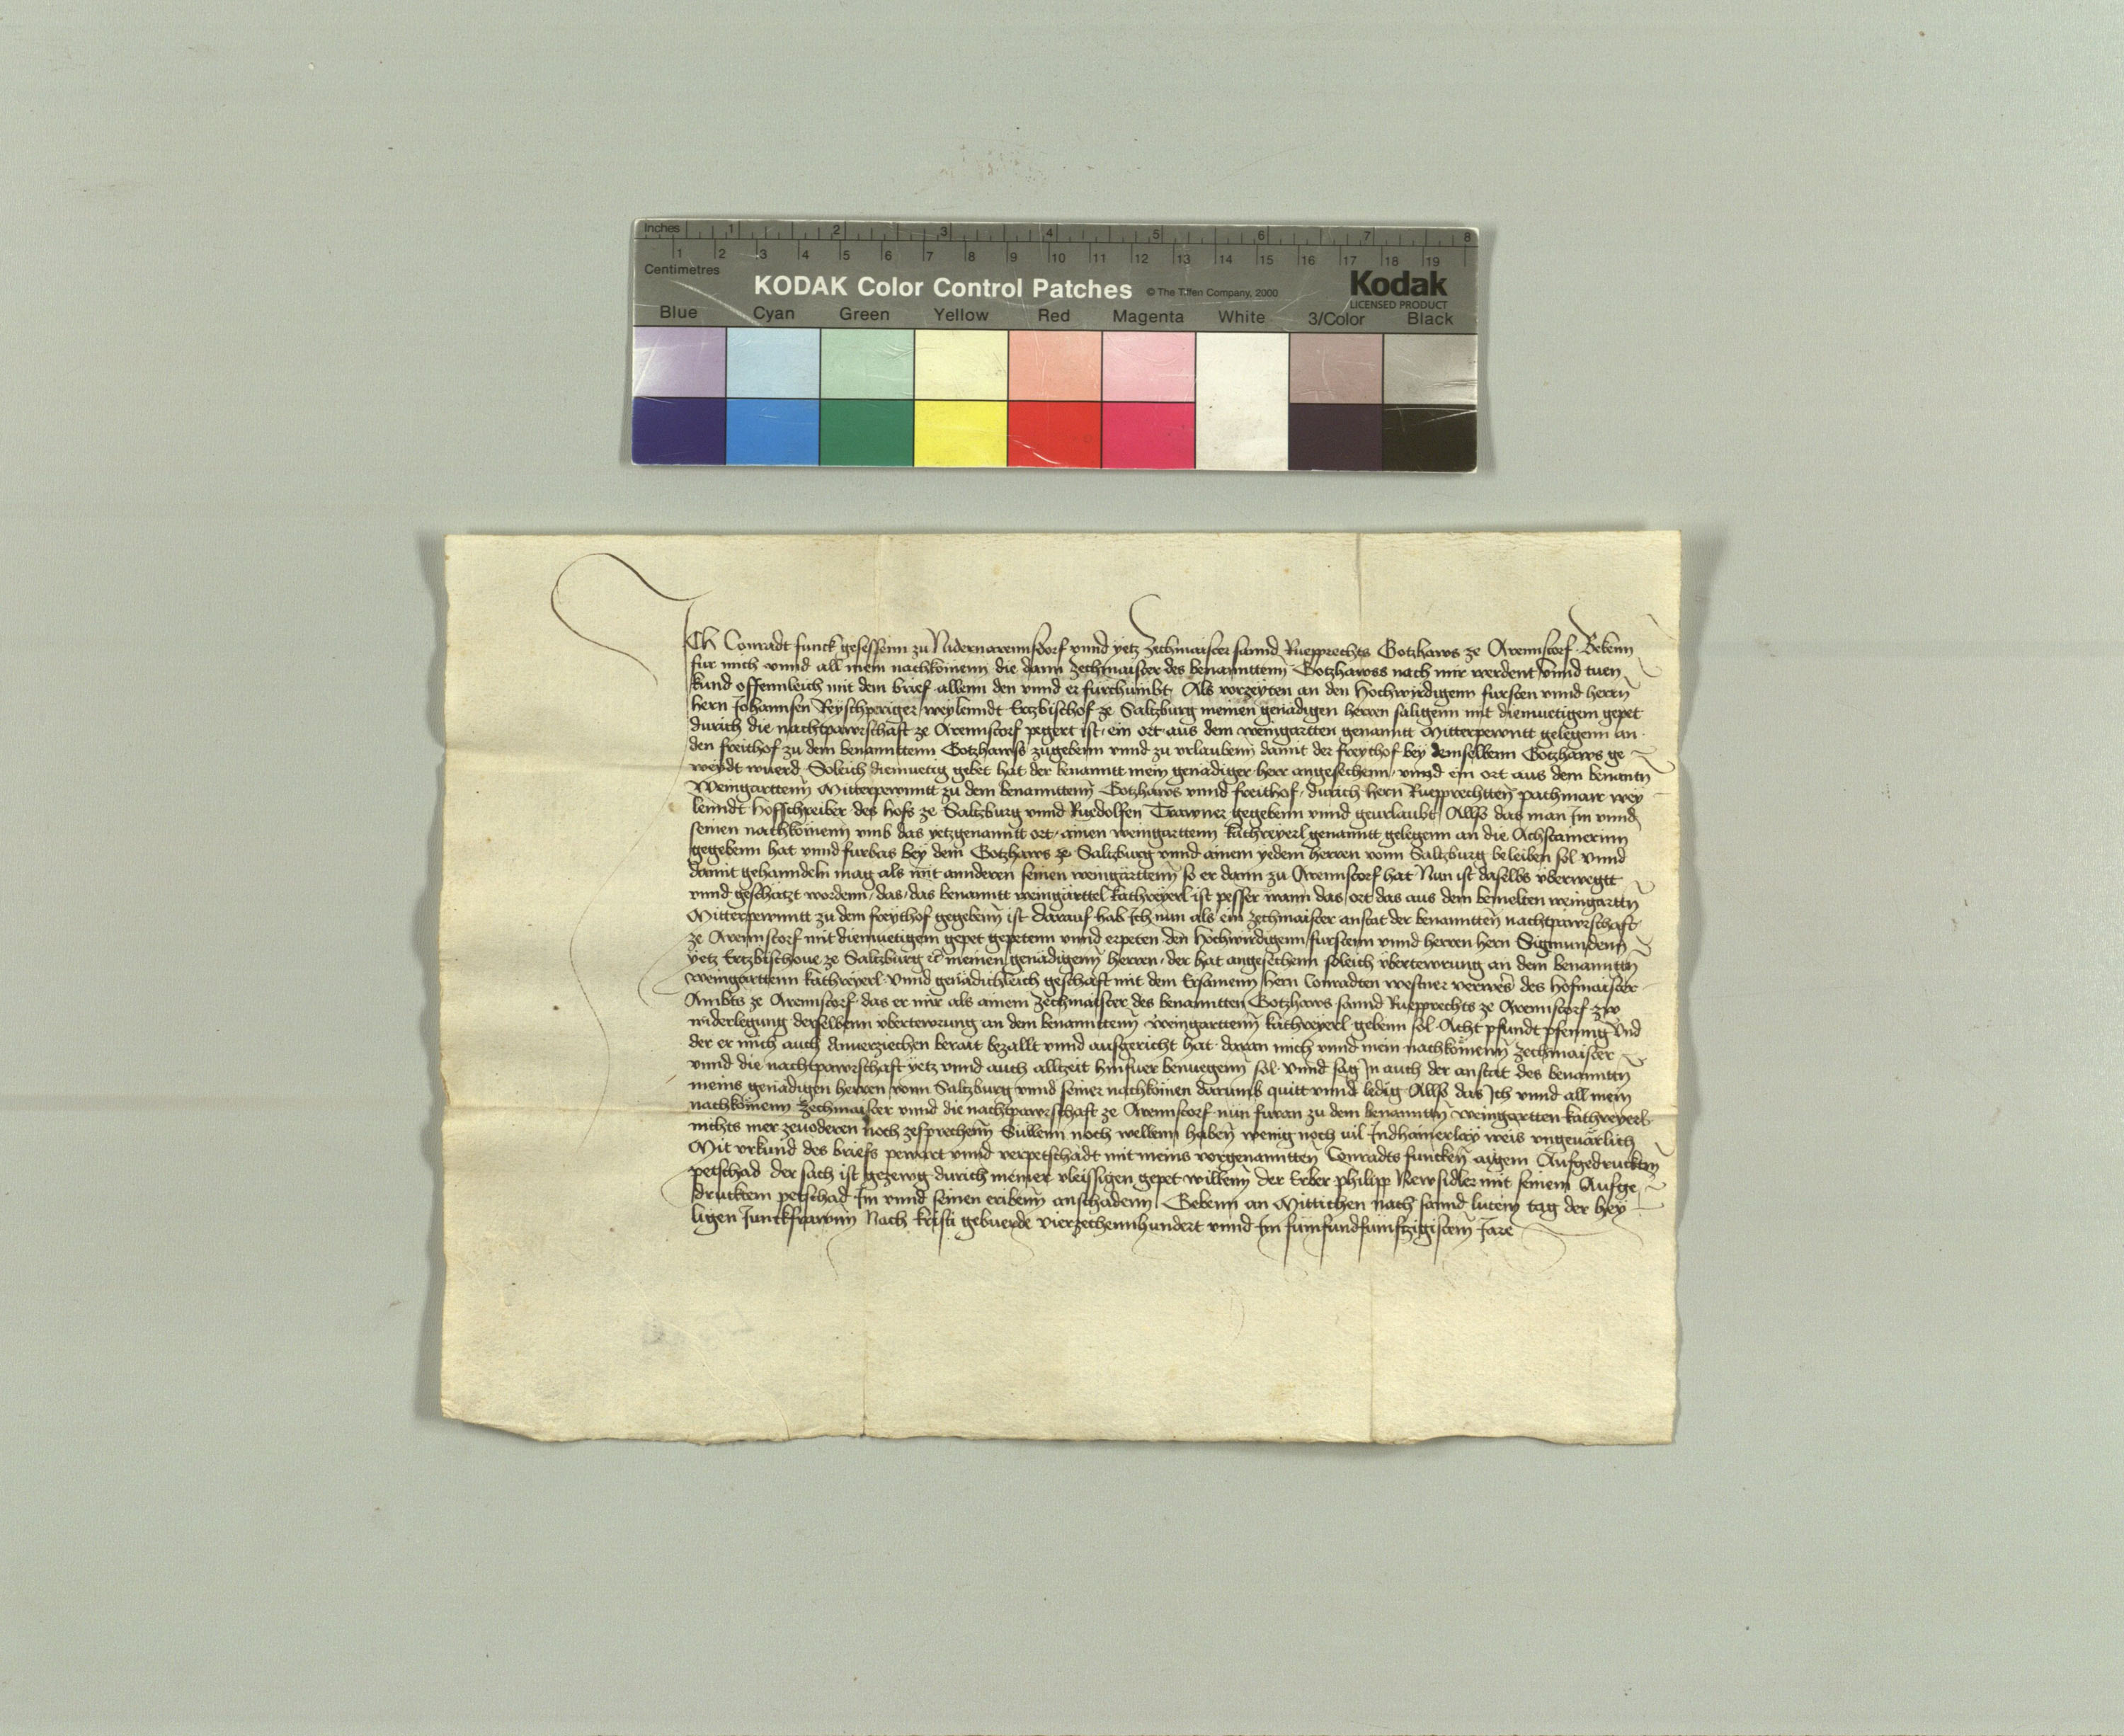 Inches 1 2 3 4 5 6 7 8
1 2 3 4 5 6 7 8 9 10 11 12 13 14 15 16 17 18 19
Centimetres
KODAK Color Control Patches © The Tiffen Company, 2000 Kodak
LICENSED PRODUCT
Blue Cyan Green Yellow Red Magenta White 3/Color Black
Ich Conradt funck gesessenn zu Nidernarennsdorf vnnd yetz Zechmaister sannd Ruepprechts Gotzhaws ze Arennstorf Bekenn
fur mich vnnd all mein nachkömenn die dann zechmaister des benannttenn Gotzhawss nach mir werdent vnnd tuen
kund offennleich mit dem brief allenn den vnnd er furchumbt Als vorzeyten an den Hochwirdigenn fursten vnnd herrn
hern Johannsen Reyschperiger weylenndt Ertzbischof ze Saltzburg meinen genadigen herren saligenn mit diemuetigem gepet
durich die nachtpawrschaft ze Arennstorf pegert ist ein ort aus dem weingartten genanntt Mitterpewntt gelegenn an
den freithof zu dem benannttenn Gotzhawss zugebenn vnnd zu vrlaubenn damit der freythof bey demselbenn Gotzhaws ge
weydt wuerd Soleich diemuetig gebet hat der benanntt mein genadiger herr angesechenn vnnd ein ort aus dem benantn
Weingarttenn Mitterpewnntt zu dem benannttenn Gotzhaws vnnd freithof durich hern Ruepprechtten pachmair wey
lenndt Hofschreiber des hofs ze Saltzburg vnnd Ruedolfen Trawner gegebenn vnnd geurlaubt Allso das man Im vnnd
seinen nachkömenn vmb das yetzgenanntt ort ainen weingarttenn kathreyerl genanntt gelegenn an die Achstainerinn
gegebenn hat vnnd furbas bey dem Gotzhaws ze Saltzburg vnnd ainem yedem herren vonn Saltzburg beleiben sol vnnd
damit gehanndeln mag als mit annderen seinen weingärttenn so er dann zu Arennstorf hat Nun ist daselbs vberwegtt
vnnd geschatzt wordenn das das benanntt weingarttel kathreyerl ist pesser wann das ort das aus dem bemelten weingarttn
Mitterpewnntt zu dem freythof gegebenn ist Darauf hab Ich nun als ein zechmaister anstat der benannten nachtpawrschaft
ze Arennstorf mit diemuetigem gepet gepetenn vnnd erpeten den hochwirdigenn furstenn vnnd herren hern Sigmundenn
yetz Ertzbischoue ze Saltzburg etc meinen genadigenn herren der hat angesechenn soleich vbertewrung an dem benanntn
weingarttenn kathreyerl vnnd genadichleich geschaft mit dem Ersamenn hern Conradten westner verwes des hofmaister
Ambts ze Arennstorf das er mir als ainem zechmaister des benannten Gotzhaws sannd Ruepprechts ze Arennstorf zw
widerlegung derselbenn vbertewrung an dem benannttenn weingarttenn kathreyerl gebenn sol Acht pfundt pfennig Vnd
der er mich auch Anuerziechen berait bezallt vnnd aufgericht hat daran mich vnnd mein nachkömenn zechmaister
vnnd die nachtpawrschaft yetz vnnd auch alltzeit hinfuer benuegenn sol vnnd sag In auch der anstat des benanntn
meins genadigen herren vonn Saltzburg vnnd seiner nachkömen darumb quitt vnnd ledig Allso das Ich vnnd all mein
nachkömenn zechmaister vnnd die nachtpawrschaft ze Arennstorf nun furan zu dem benanntn weingartten kathreyerl
nichts mer zeuoderen noch zesprechenn Sullenn noch wellenn haben wenig noch vil Indhainerlay weis vngeuärlich
Mit vrkund des briefs pewart vnnd verpetschadt mit meins vorgenannten Conradts funcken aigem Aufgedrucktm
petschad der sach ist gezewg durich meiner vleissigen gepet willenn der Erber philipp Newsidler mit seinem Aufge
drucktem petschad Im vnnd seinen eribenn anschadenn Gebenn an Mittichen nach sannd lucein tag der hey
ligen Junckfrawnn Nach kristi gebuerde vierzechennhundert vnnd Im funfundfunftzigistem Jare